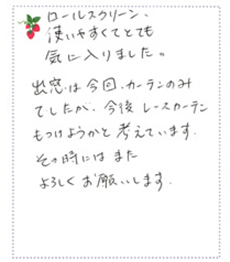 ロールスクリーン、
使いやすくてとても
気に入りました。
出窓は今回、カーテンのみ
でしたが、今後レースカーテン
もつけようかと考えています。
その時にはまた
よろしくお願いします。